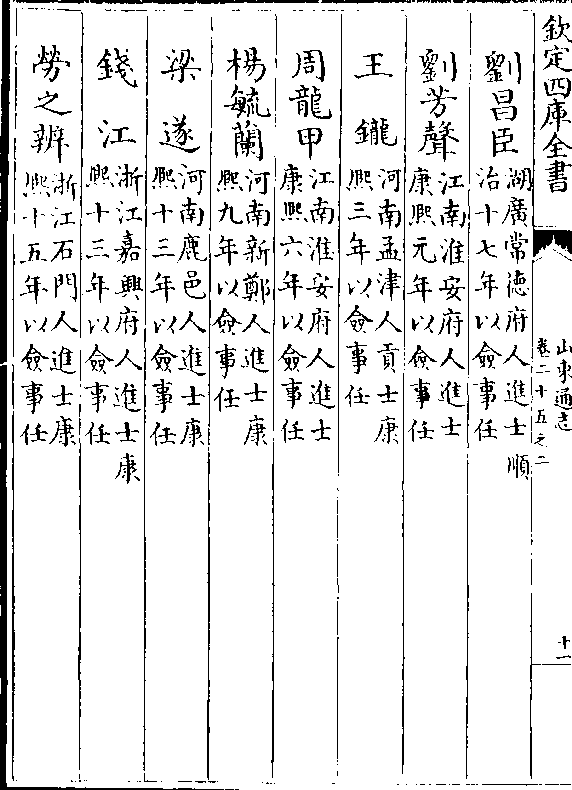 欽定四庫全書
山東通志
卷二十五之二
十一
劉昌臣
湖廣常德府人進士順
治十七年以僉事任
劉芳聲
江南淮安府人進士
康熙元年以僉事任
王鑨
河南孟津人貢士康
熙三年以僉事任
周龍甲
江南淮安府人進士
康熙六年以僉事任
楊毓蘭
河南新鄭人進士康
熙九年以僉事任
梁遂
河南鹿邑人進士康
熙十三年以僉事任
錢江
浙江嘉興府人進士康
熙十三年以僉事任
勞之辨
浙江石門人進士康
熙十五年以僉事任